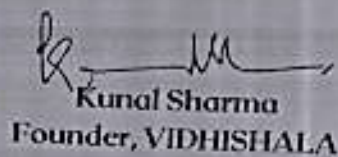 Kunal Sharma
Founder, VIDHISHALA